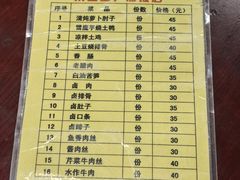 序号 菜品 份数 价格(元)
1 清炖萝卜肘子 份 45
2 雪魔芋烧土鸭 份 45
3 凉拌土鸡 份 45
4 土豆烧排骨 份 40
5 香肠 份 45
6 老腊肉 份
7 白油苦笋 份 35
8 卤肉 份 30
9 卤排骨 份 40
10 卤肚子 份 35
11 卤口条 份 35
12 卤蹄子 份 35
13 鱼香肉丝 份 30
14 酱肉丝 份 30
15 芹菜牛肉丝 份 35
16 水作牛肉 份 40